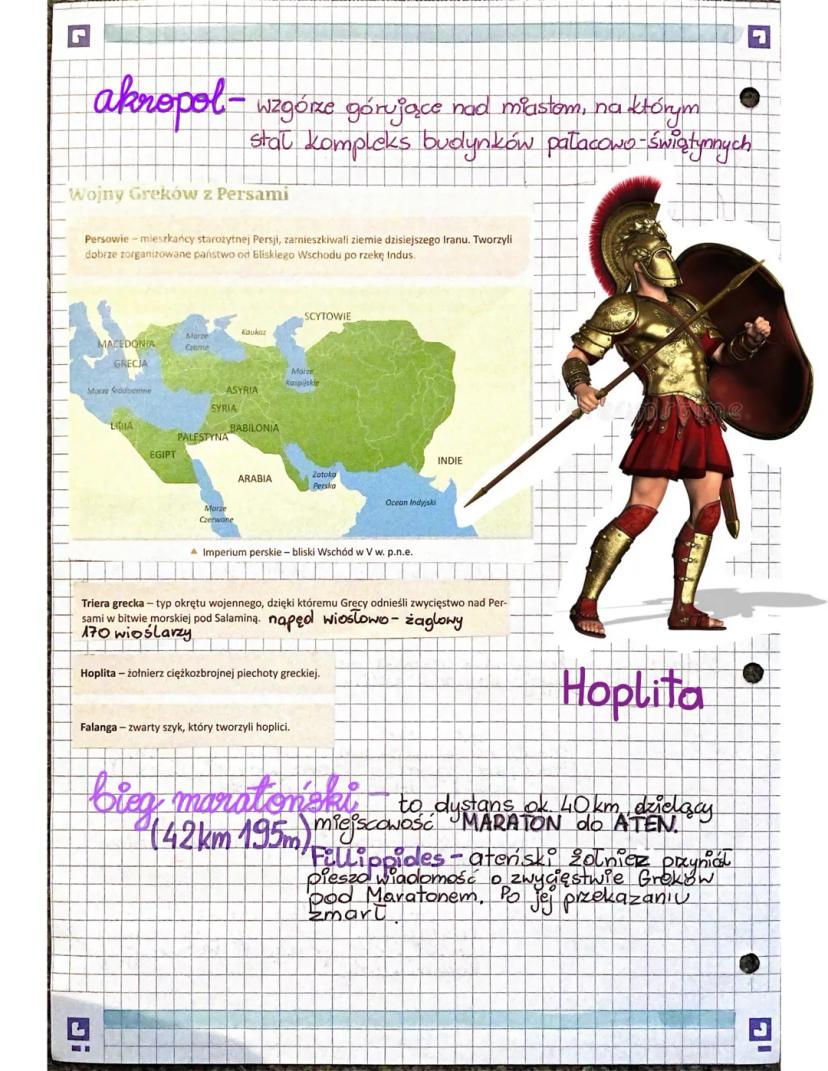 akropol - wzgórze górujące nad miastem, na którym
stał kompleks budynków pałacowo-świątynnych
Wojny Greków z Persami
Persowie – mieszkańcy starożytnej Persji, zamieszkiwali ziemie dzisiejszego Iranu. Tworzyli
dobrze zorganizowane państwo od Bliskiego Wschodu po rzekę Indus.
SCYTOWIE
Morze
Czarne
Kaukaz
MACEDONIA
GRECJA
Morze
Kaspijskie
Morze Śródziemne
ASYRIA
SYRIA
LIBIA
BABILONIA
PALESTYNA
EGIPT
INDIE
ARABIA
Zatoka
Perska
Ocean Indyjski
Morze
Czerwone
▲ Imperium perskie – bliski Wschód w V w. p.n.e.
Triera grecka – typ okrętu wojennego, dzięki któremu Grecy odnieśli zwycięstwo nad Per-
sami w bitwie morskiej pod Salaminą. napęd wiosłowo - żaglowy
170 wioślarzy
Hoplita – żołnierz ciężkozbrojnej piechoty greckiej.
Hoplita
Falanga – zwarty szyk, który tworzyli hoplici.
bieg maratoński - to dystans ok. 40 km, dzielący
(42km 195m) miejscowość MARATON do ATEN.
Fillippides - ateński żołnierz przyniósł
pieszo wiadomość o zwycięstwie Greków
pod Maratonem. Po jej przekazaniu
zmarł.